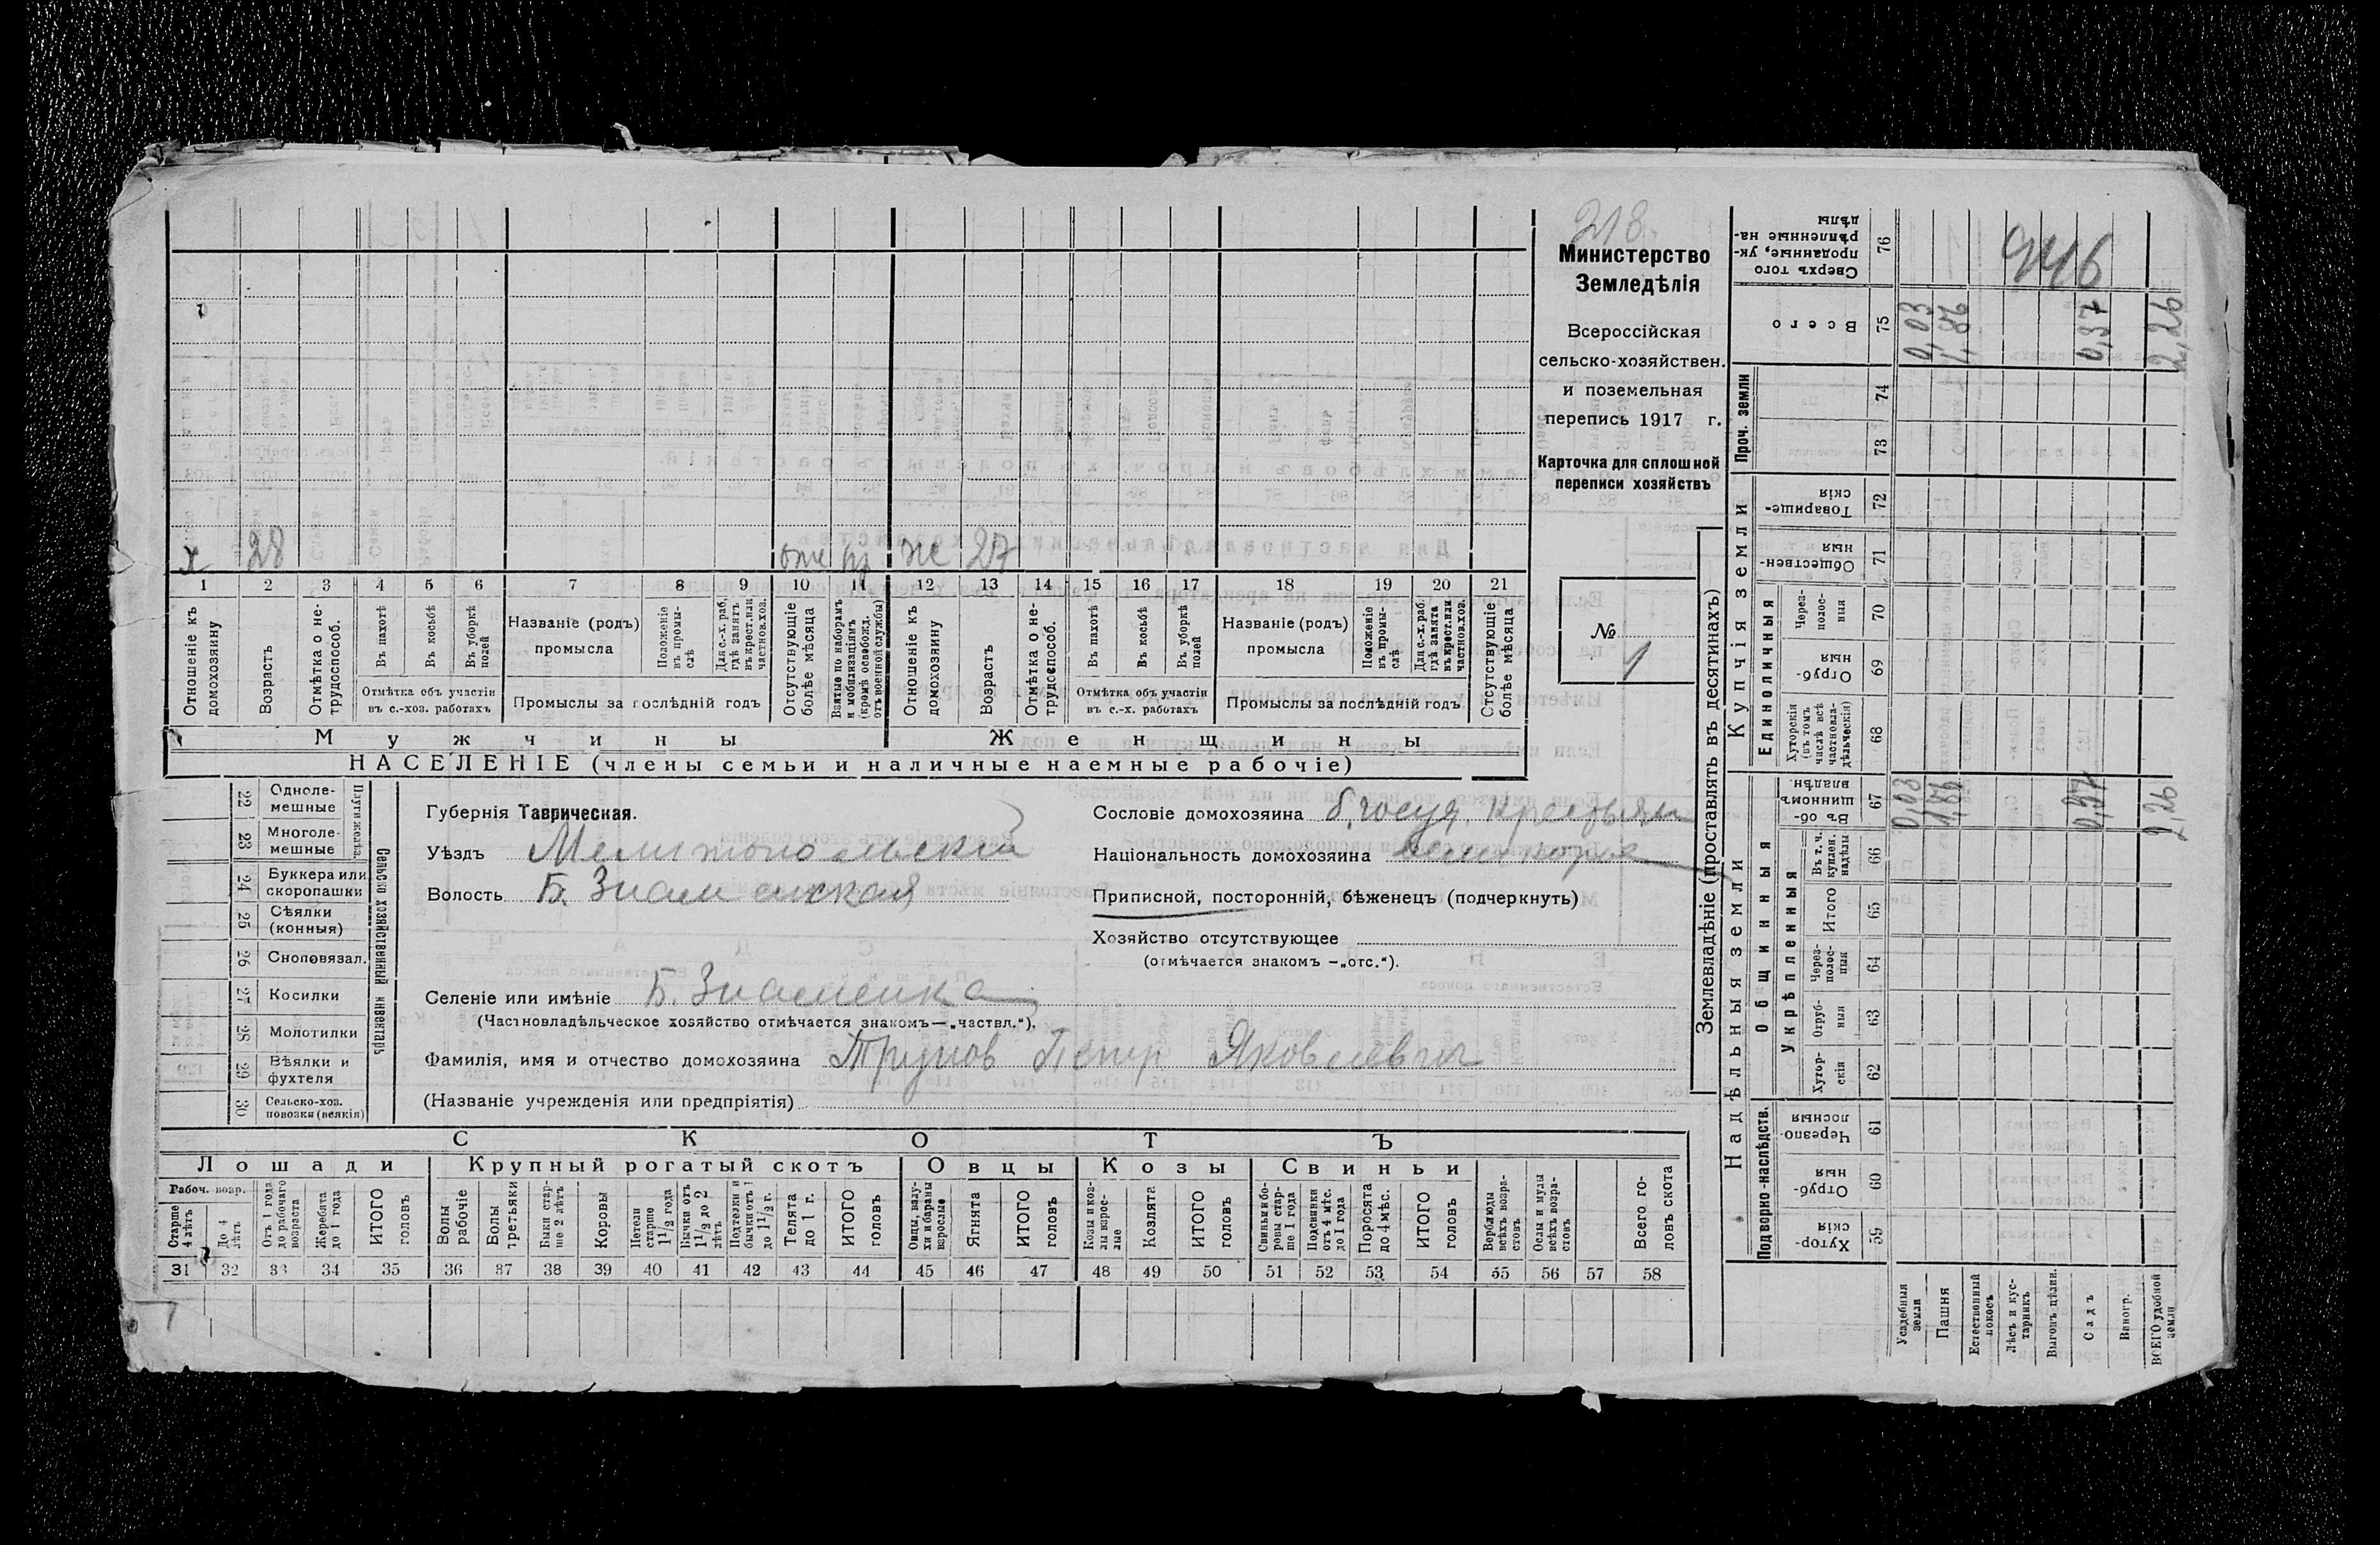 218
Министерство
Земледѣлія
Всероссійская
сельско-хозяйствен.
и поземельная
перепись 1917 г.
Карточка для сплошной
переписи хозяйствъ
№ 1
х 28 же 27
1 2 3 4 5 6 7 8 9 10 11 12 13 14 15 16 17 18 19 20 21
Отношеніе къ домохозяину
Возрасть
Отмѣтка о не-трудоспособ.
Въ пахотѣ
Въ косьбѣ
Въ уборкѣ полей
Отмѣтка объ участіи
въ с.-хоз. работахъ
Названіе (родъ)
промысла
Положеніе въ промы-слѣ
Для с.-х. раб. гдѣ занятъ въ крест. или частнов. хоз.
Промыслы за послѣдній годъ
Отсутствующіе болѣе мѣсяца
Взятые по наборамъ и мобилизаціямъ (кромѣ освобожд. отъ военной службы)
Отношеніе къ домохозяину
Возрасть
Отмѣтка о не-трудоспособ.
Въ пахотѣ
Въ косьбѣ
Въ уборкѣ полей
Отмѣтка объ участіи
въ с.-х. работахъ
Названіе (родъ)
промысла
Положеніе въ промы-слѣ
Для с.-х. раб. гдѣ занята въ крест. или частнов. хоз.
Промыслы за послѣдній годъ
Отсутствующіе болѣе мѣсяца
Мужчины Женщины
НАСЕЛЕНІЕ (члены семьи и наличные наемные рабочіе)
Сельско хозяйственный инвентарь
Плуги желѣз.
22 Одноле-мешные
23 Многоле-мешные
24 Буккера или скоропашки
25 Сѣялки (конныя)
26 Сноповязал.
27 Косилки
28 Молотилки
29 Вѣялки и фухтеля
30 Сельско-хоз. повозки (всякія)
Губернія Таврическая.
Уѣздъ Мелитопольскій
Волость Б. Знаменская
Сословіе домохозяина б. госуд. крестьян
Національность домохозяина
Приписной, посторонній, бѣженецъ (подчеркнуть)
Хозяйство отсутствующее
(отмѣчается знакомъ —„отс.“).
Селеніе или имѣніе Б. Знаменка
(Частновладѣльческое хозяйство отмѣчается знакомъ—„частвл.“).
Фамилія, имя и отчество домохозяина Трунов Петр Яковлевич
(Названіе учрежденія или предпріятія)
СКОТЪ
Лошади Крупный рогатый скотъ Овцы Козы Свиньи
Рабоч. возр.
Старше 4 лѣтъ
До 4 лѣтъ
Отъ 1 года до рабочаго возраста
Жеребята до 1 года
ИТОГО головъ
Волы рабочіе
Волы третьяки
Быки стар-ше 2 лѣтъ
Коровы
Нетели старше 1½ года
Бычки отъ 1½ до 2 лѣтъ
Подтелки и бычки отъ 1 до 1½ г.
Телята до 1 г.
ИТОГО головъ
Овцы, валу-хи и бараны взрослые
Ягнята
ИТОГО головъ
Козы и коз-лы взрос-лые
Козлята
ИТОГО головъ
Свиньи и бо-ровы стар-ше 1 года
Подсвинки отъ 4 мѣс. до 1 года
Поросята до 4 мѣс.
ИТОГО головъ
Верблюды всѣхъ возра-стовъ
Ослы и мулы всѣхъ возра-стовъ
Всего го-ловъ скота
31 32 33 34 35 36 37 38 39 40 41 42 43 44 45 46 47 48 49 50 51 52 53 54 55 56 57 58
Землевладѣніе (проставлять въ десятинахъ)
Надѣльныя земли
Купчія земли
Проч. земли
Подворно-наслѣдств.
Общинныя
Укрѣпленныя
Единоличныя
Сверхъ того проданные, ук-рѣпленные на-дѣлы 76 946
Всего 75 0,03 1,86 0,37 2,26
74
73
Товарище-скія 72
Обществен-ныя 71
Через-полос-ныя 70
Отруб-ныя 69
Хуторскія (въ томъ числѣ всѣ частновла-дѣльческія) 68
Въ об-щинномъ владѣн. 67 0,03 1,86 0,37 2,26
Въ т. ч. куплен. надѣлы 66
Итого 65
Через-полос-ныя 64
Отруб-ныя 63
Хутор-скія 62
Черезпо-лосныя 61
Отруб-ныя 60
Хутор-скія 59
Усадебныя земли
Пашня
Естественный покосъ
Лѣсъ и кус-тарникъ
Выгонъ цѣлин.
Садъ
Виногр.
ВСЕГО удобной земли